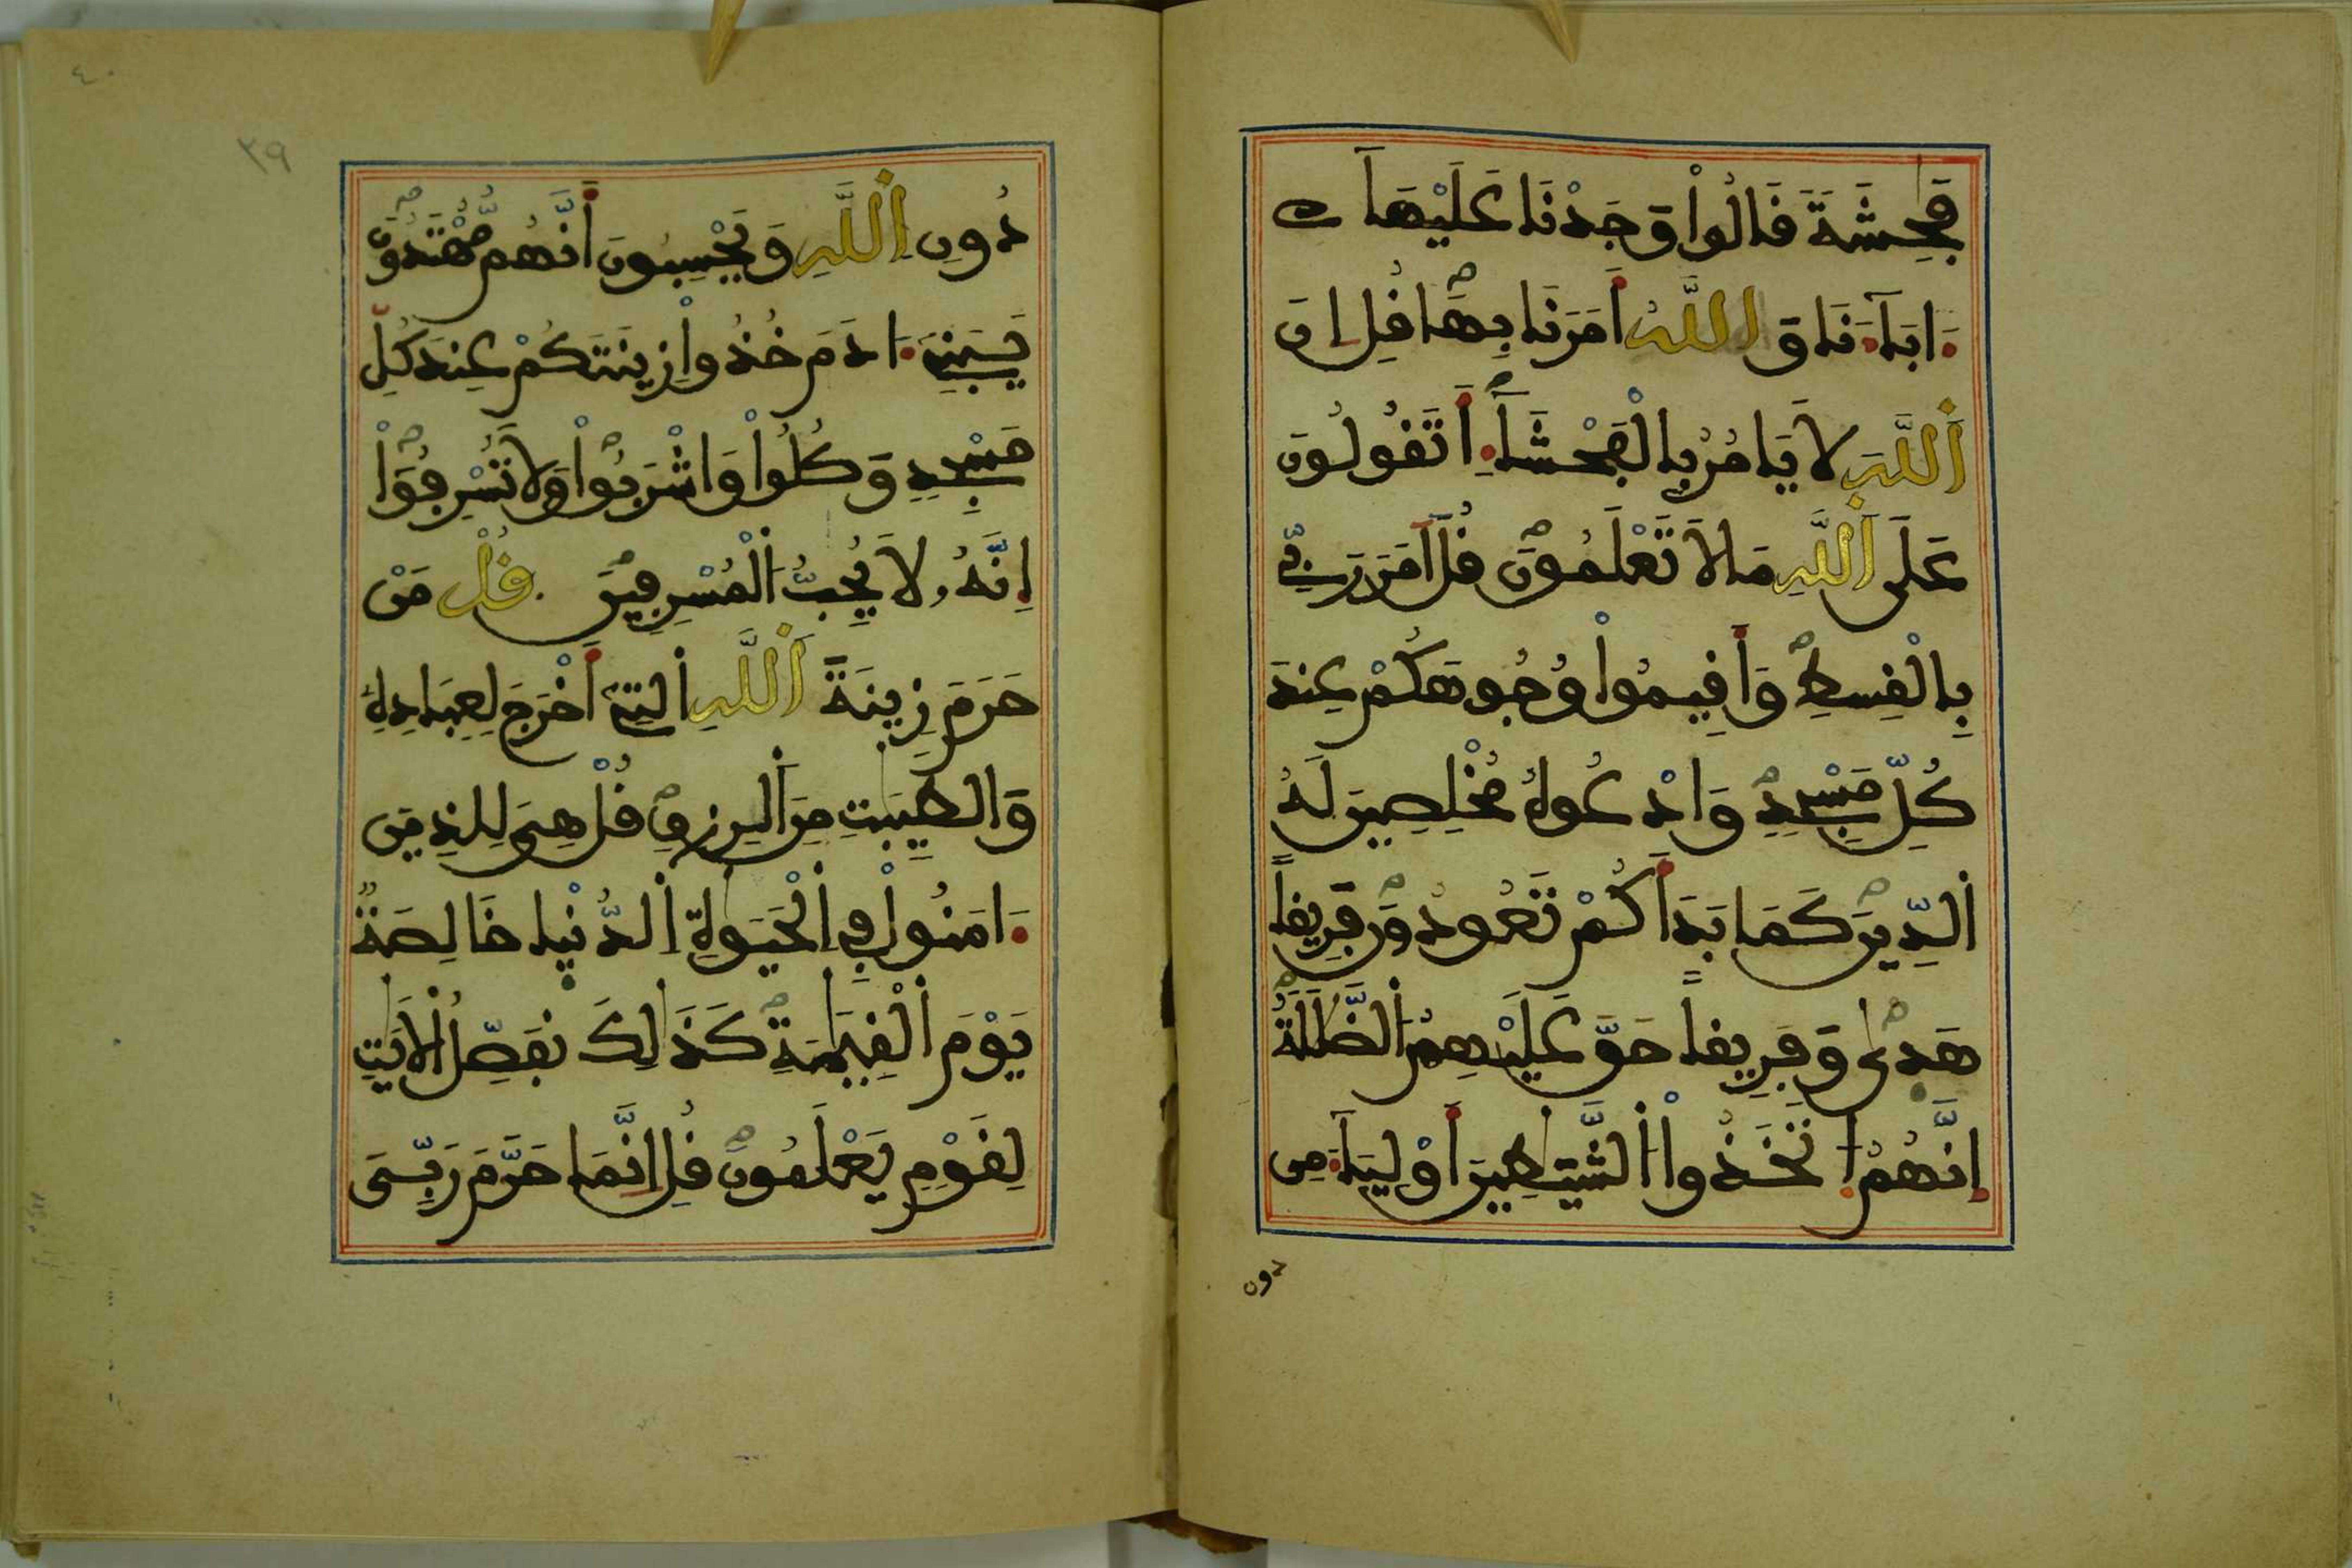 فَٰحِشَةٗ قَالُواْ وَجَدْنَا عَلَيْهَآ
ءَابَآءَنَا وَاللَّهُ أَمَرَنَا بِهَا قُلِ انَّ
اَللَّهَ لَا يَامُرُ بِالْفَحْشَآءِ أَتَقُولُونَ
عَلَى اَللَّهِ مَا لَا تَعْلَمُونَ قُلَ اَمَرَ رَبِّے
بِالْقِسْطِ وَأَقِيمُواْ وُجُوهَكُمْ عِندَ
كُلِّ مَسْجِدٖ وَادْعُوهُ مُخْلِصِينَ لَهُ
اُلدِّينَ كَمَا بَدَأَكُمْ تَعُودُونَ فَرِيقاً
هَدٜىٰ وَفَرِيقاً حَقَّ عَلَيْهِمُ اُلضَّلَٰلَةُ
إِنَّهُمُ اُ تَّخَذُواْ اُلشَّيَٰطِينَ أَوْلِيَآءَ مِن
دون
٤٠
٣٩
دُونِ اِللَّهِ وَيَحْسِبُونَ أَنَّهُم مُّهْتَدُونَ
يَٰبَنِےٓ ءَادَمَ خُذُواْ زِينَتَكُمْ عِندَ كُلِّ
مَسْجِدٖ وَكُلُواْ وَاشْرَبُواْ وَلَا تُسْرِفُوٓاْ
إِنَّهُۥ لَا يُحِبُّ اُلْمُسْرِفِينَ قُلْ مَنْ
حَرَّمَ زِينَةَ اَللَّهِ اِلتِےٓ أَخْرَجَ لِعِبَادِهِ
وَالطَّيِّبَٰتِ مِنَ اَلرِّزْقِ قُلْ هِىَ لِلذِينَ
ءَامَنُواْ فِے اِلْحَيَوٰةِ اِلدُّنْيٜا خَالِصَةٌ
يَوْمَ اَلْقِيَٰمَةِ كَذَٰلِكَ نُفَصِّلُ اُلَايَٰتِ
لِقَوْمٖ يَعْلَمُونَ قُلِ انَّمَا حَرَّمَ رَبِّىَ